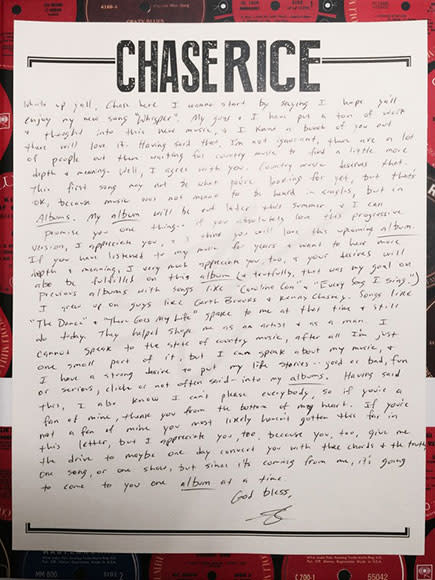 CHASE RICE
What's up y'all, Chase here. I wanna start by saying I hope y'all
enjoy my new song "Whisper". My guys & I have put a ton of work
& thought into this new music, & I know a bunch of you out
there will love it. Having said that, I'm not ignorant, there are a lot
of people out there waiting for country music to find a little more
depth & meaning. Well, I agree with you. Country music deserves that.
This first song may not be what you're looking for yet, but that's
OK, because music was not meant to be heard in singles, but in
Albums. My album will be out later this summer, & I can
promise you one thing... if you absolutely love this progressive
version, I appreciate you, & I think you will love this upcoming album.
If you have listened to my music for years & want to hear more
depth & meaning, I very much appreciate you, too, & your desires will
also be fulfilled on this album (& truthfully, that was my goal on
previous albums with songs like "Carolina Can" & "Every Song I Sing".)
I grew up on guys like Garth Brooks & Kenny Chesney. Songs like
"The Dance" & "There Goes My Life" spoke to me at that time & still
do today. They helped shape me as an artist & as a man. I
cannot speak to the state of country music, after all I'm just
one small part of it, but I can speak about my music, &
I have a strong desire to put my life stories-- good or bad, fun
or serious, cliche or not often said--into my albums. Having said
this, I also know I can't please everybody, so if you're a
fan of mine, thank you from the bottom of my heart. If you're
not a fan of mine you most likely haven't gotten this far in
this letter, but I appreciate you, too, because you, too, give me
the drive to maybe one day convert you with three chords & the truth,
one song, or one show, but since it's coming from me, it's going
to come to you one album at a time.
God bless,
MM 600
C 700-1
55042